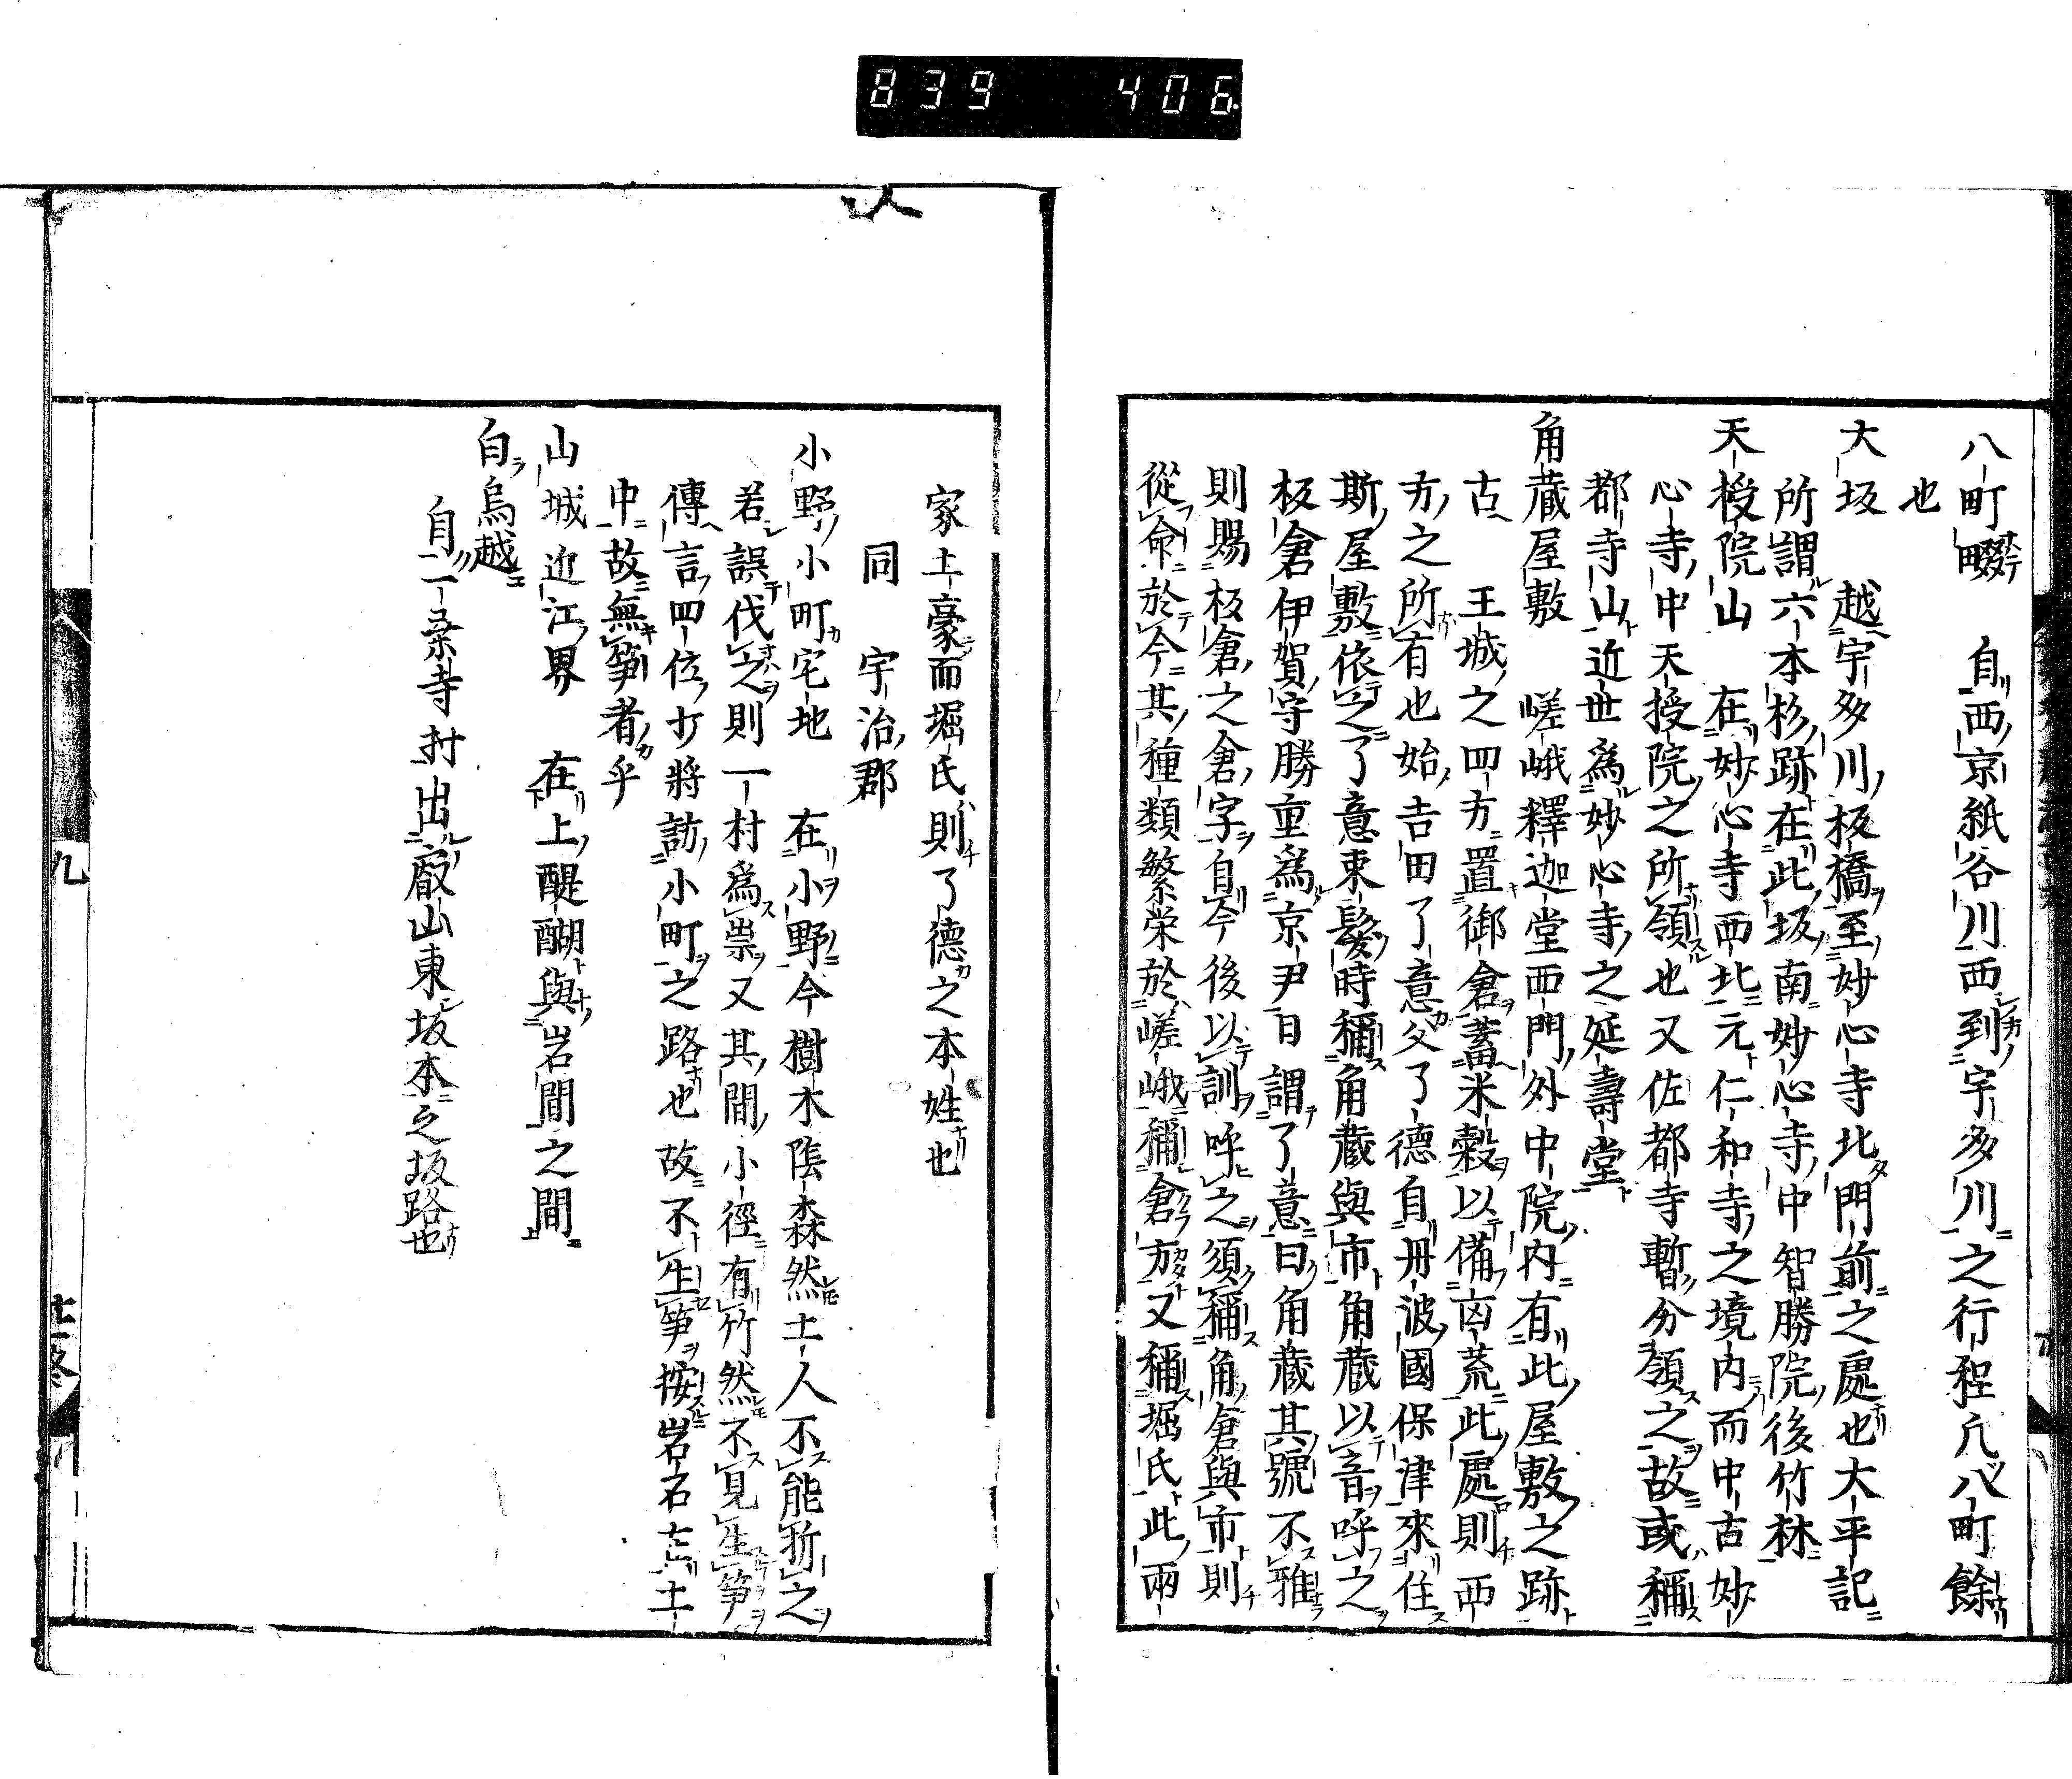 839 406
八町畷 自西京紙谷川西到宇多川之行程凢八町餘
也
大坂越 宇多川板橋至妙心寺北門前之處也大平記
所謂六本杉跡在此坂南妙心寺中智勝院後竹林
天授院山 在妙心寺西北元仁和寺之境内而中古妙
心寺中天授院之所領也又佐都寺暫分領之故或稱
都寺山近世爲妙心寺之延壽堂
角蔵屋敷 嵯峨釋迦堂西門外中院内有此屋敷之跡
古 王城之四方置御倉蓄米穀以備凶荒此處則西
方之所有也始吉田了意父了德自丹波國保津來住
斯屋敷依之了意束髮時稱角蔵與市角蔵以音呼之
板倉伊賀守勝重爲京尹日謂了意曰角蔵其號不雅
則賜板倉之倉字自今後以訓呼之須稱角倉與市則
從命於今其種類繁栄於嵯峨稱倉方又稱堀氏此兩
家土豪而堀氏則了德之本姓也
同 宇治郡
小野小町宅地 在小野今樹木陰森然土人不能斫之
若誤伐之則一村爲祟又其間小徑有竹然不見生笋
傳言四位少將訪小町之路也故不生笋按岩石土
中故無笋者乎
山城近江界 在上醍醐與岩間之間
自烏越
自一乗寺村出叡山東坂本之坂路也
九